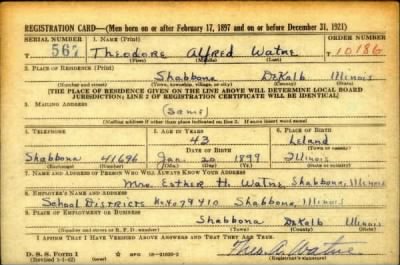 REGISTRATION CARD—(Men born on or after February 17, 1897 and on or before December 31, 1921)
SERIAL NUMBER 1. NAME (Print) ORDER NUMBER
T 567 Theodore Alfred Watne T 10186
(First) (Middle) (Last)
2. PLACE OF RESIDENCE (Print)
Shabbona DeKalb Illinois
(Number and street) (Town, township, village, or city) (County) (State)
[THE PLACE OF RESIDENCE GIVEN ON THE LINE ABOVE WILL DETERMINE LOCAL BOARD
JURISDICTION; LINE 2 OF REGISTRATION CERTIFICATE WILL BE IDENTICAL]
3. MAILING ADDRESS
(same)
[Mailing address if other than place indicated on line 2. If same insert word same]
4. TELEPHONE 5. AGE IN YEARS 6. PLACE OF BIRTH
43 Leland
DATE OF BIRTH (Town or county)
Shabbona 41696 Jan. 20 1899 Illinois
(Exchange) (Number) (Mo.) (Day) (Yr.) (State or country)
7. NAME AND ADDRESS OF PERSON WHO WILL ALWAYS KNOW YOUR ADDRESS
Mrs. Esther H. Watne, Shabbona, Illinois
8. EMPLOYER'S NAME AND ADDRESS
School Districts Shabbona, Illinois
9. PLACE OF EMPLOYMENT OR BUSINESS
Shabbona DeKalb Illinois
(Number and street or R. F. D. number) (Town) (County) (State)
I AFFIRM THAT I HAVE VERIFIED ABOVE ANSWERS AND THAT THEY ARE TRUE.
D. S. S. Form 1
(Revised 1-1-42) (over)